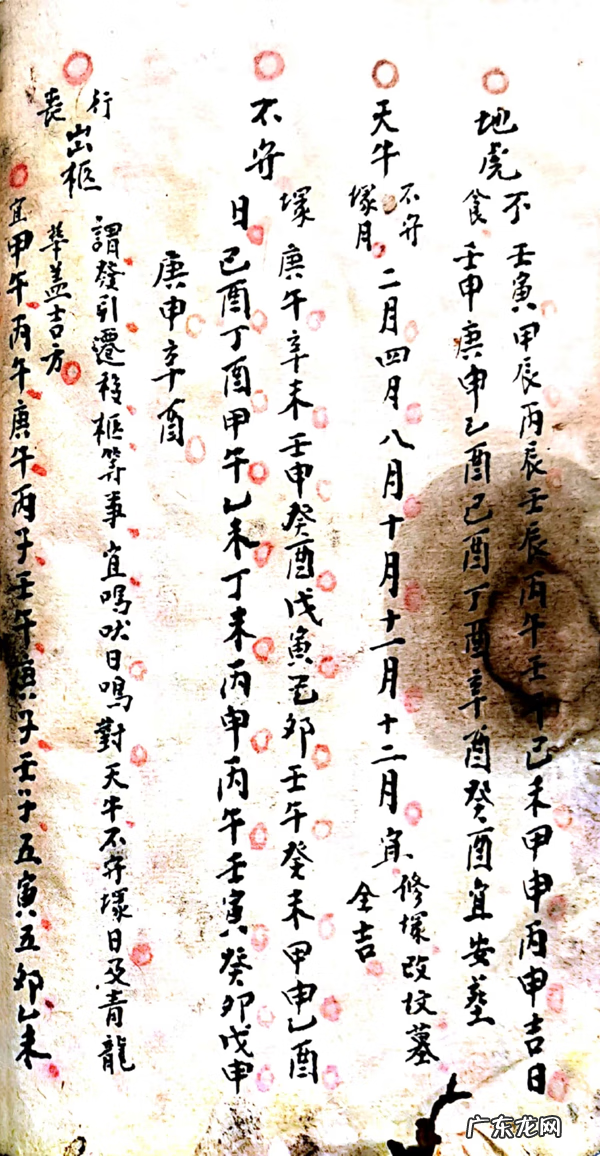 地虎
不食
壬寅甲辰丙辰壬辰丙午壬午己未甲申丙申吉日
壬申庚申乙酉己酉丁酉辛酉癸酉宜安葬
天牛
不守塚月
二月四月八月十月十一月十二月宜
修塚改坟墓
全吉
不守
塚 庚午辛未壬申癸酉戊寅己卯壬午癸未甲申乙酉
日 己酉丁酉甲午乙未丁未丙申丙午壬寅癸卯戊申
庚申辛酉
行喪
出柩
謂發引遷移柩等事宜鳴吠日鳴對天牛不守塚日及青龍
華盖吉方
宜甲午丙午庚午丙子壬午庚子壬子五寅五卯乙未
广东龙网